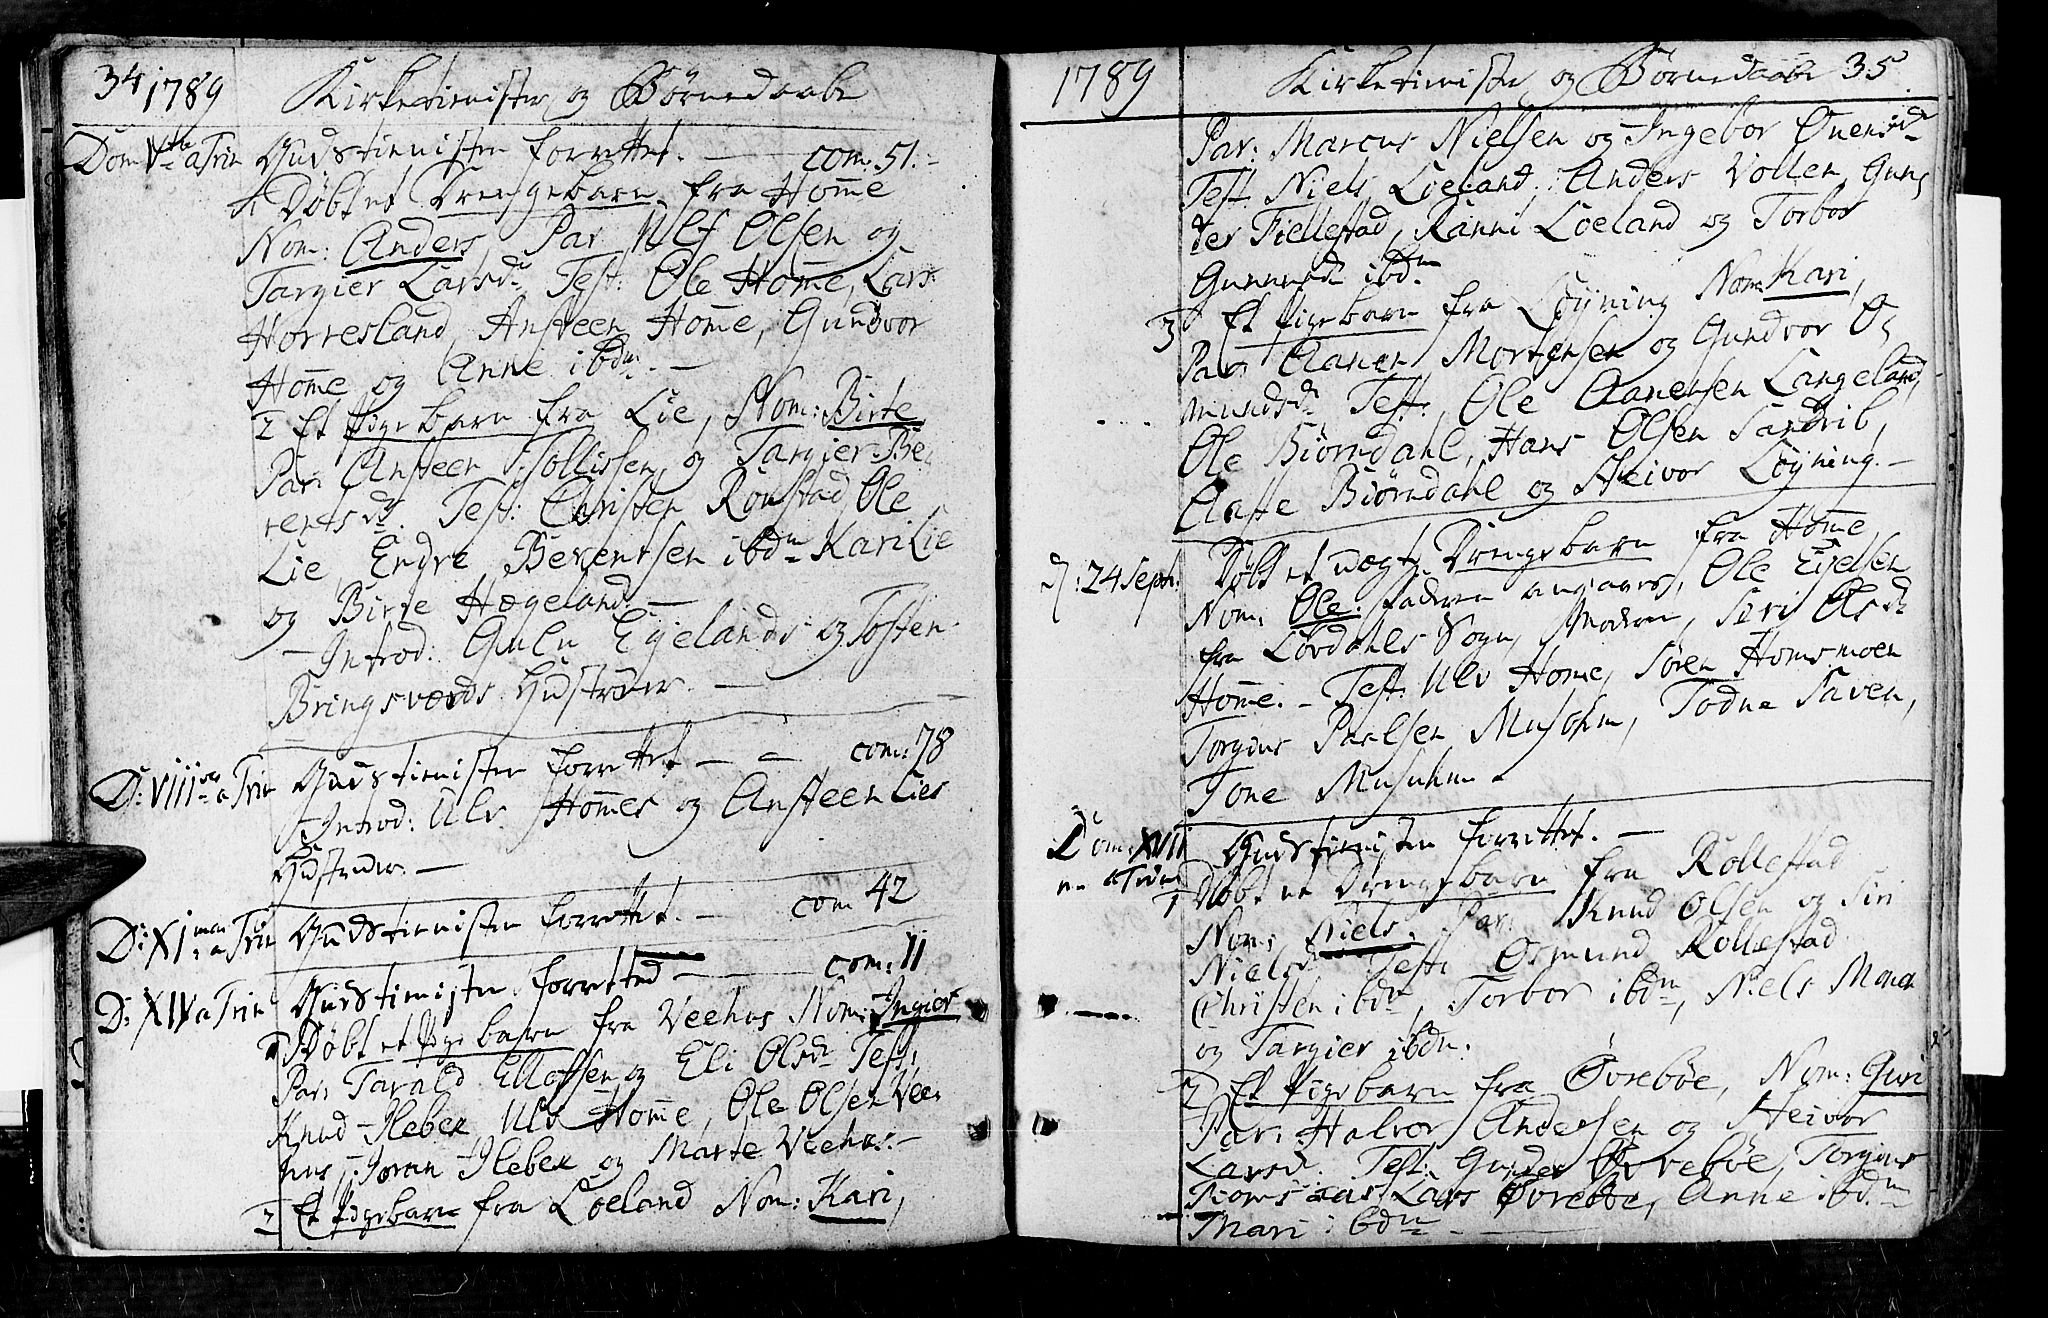 34 1789 Kirketienister og Børnedaabe
Dom Vte a Trin Gudstienisten forrettet. — com. 51. -
1 Døbt et Drengebarn fra Homme
Nom: Anders, Par: Ulf Olsen og
Targier Larsd. Test: Ole Homme, Lars
Horresland, Ansteen Homme, Gundvor
Homme og Anne ibdm. -
2 Et Pigebarn fra Lie, Nom: Birte
Par: Ansteen Tollissen, og Targier Be,
rentsdr. Test: Christen Romstad Ole
Lie, Endre Berentsen ibdm Kari Lie
og Birte Hægeland. —
- Introd: Eyelands og Tosten
Bringsværds Hustruer. —
D: VIII a Trin Gudstienisten forrettet — - com: 78
Introd: Ulv Hommes og Ansteen Lies
Hustruer. —
D: XI a Trin Gudstienisten forrettet. - com 42
D: XIV a Trin Gudstienisten forretted — com: 11
1 Døbt et Pigebarn fra Veehus Nom: Ingier
Par: Tarald Ellefsen og Eli Olsdr Test:
Knud Ilebek Ulv Homme, Ole Olsen Vee,
hus, Joran Ilebek og Marte Veehus. -
2 Et Pigebarn fra Løeland Nom: Kari,
1789 Kirketienister og Børnedaabe 35
Par: Marcus Nielsen og Ingebor
Test: Niels Løeland, Anders Vollen, Gun,
der Fiellestad, Ranni Løeland og Torbor
ibdm.
3 Et Pigebarn fra Løyning Nom: Kari,
Par: Aanen Mortensen og Gundvor O,
mundsdr Test: Ole Aanensen Langeland,
Ole Biørndahl, Hans Olsen Sandrib,
Aaste Biørndahl og Heivor Løyning. -
d: 24 Sept: Døbt et uægte Drengebarn fra Homme
Nom: Ole. Faderen angaves, Ole Eyelsen
fra Løvdahls Sogn, Moderen, Siri Olsdr
Homme. - Test: Ulv Home, Søren Homsmoen
Torgius Paalsen Musohm, Todne Saven,
Tone Musuhm.
Dom: XVII a Trin Gudstienisten forrettet. —
1 Døbt et Drengebarn fra Rollestad
Nom: Niels. Par: Knud Olsen og Siri
Nielsd. Test: Osmund Rollestad
Christen ibdm, Torbor ibdm, Niels Moen
og Targier ibdm.
2 Et Pigebarn fra Øvrebøe, Nom: Guri
Par: Halvor Andersen og Heivor
Larsd. Test: Gunder Øvrebøe, Torgius
Lars Øvrebøe, Anne ibdm
Mari ibdm — . —